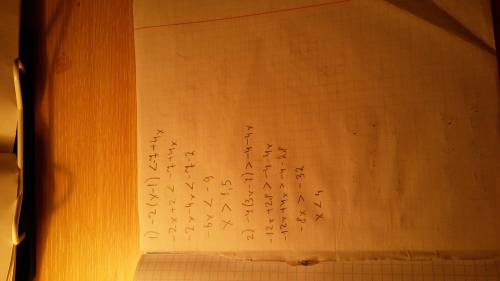 1) -2(x-1) <-7+4x
-2x+2 < -7+4x
-2x-4x<-7-2
-6x < -9
x > 1,5
2) -4(3x-7)>-4-4x
-12x+28 >-4-4x
-12x+4x>-4-28
-8x > -32
x < 4